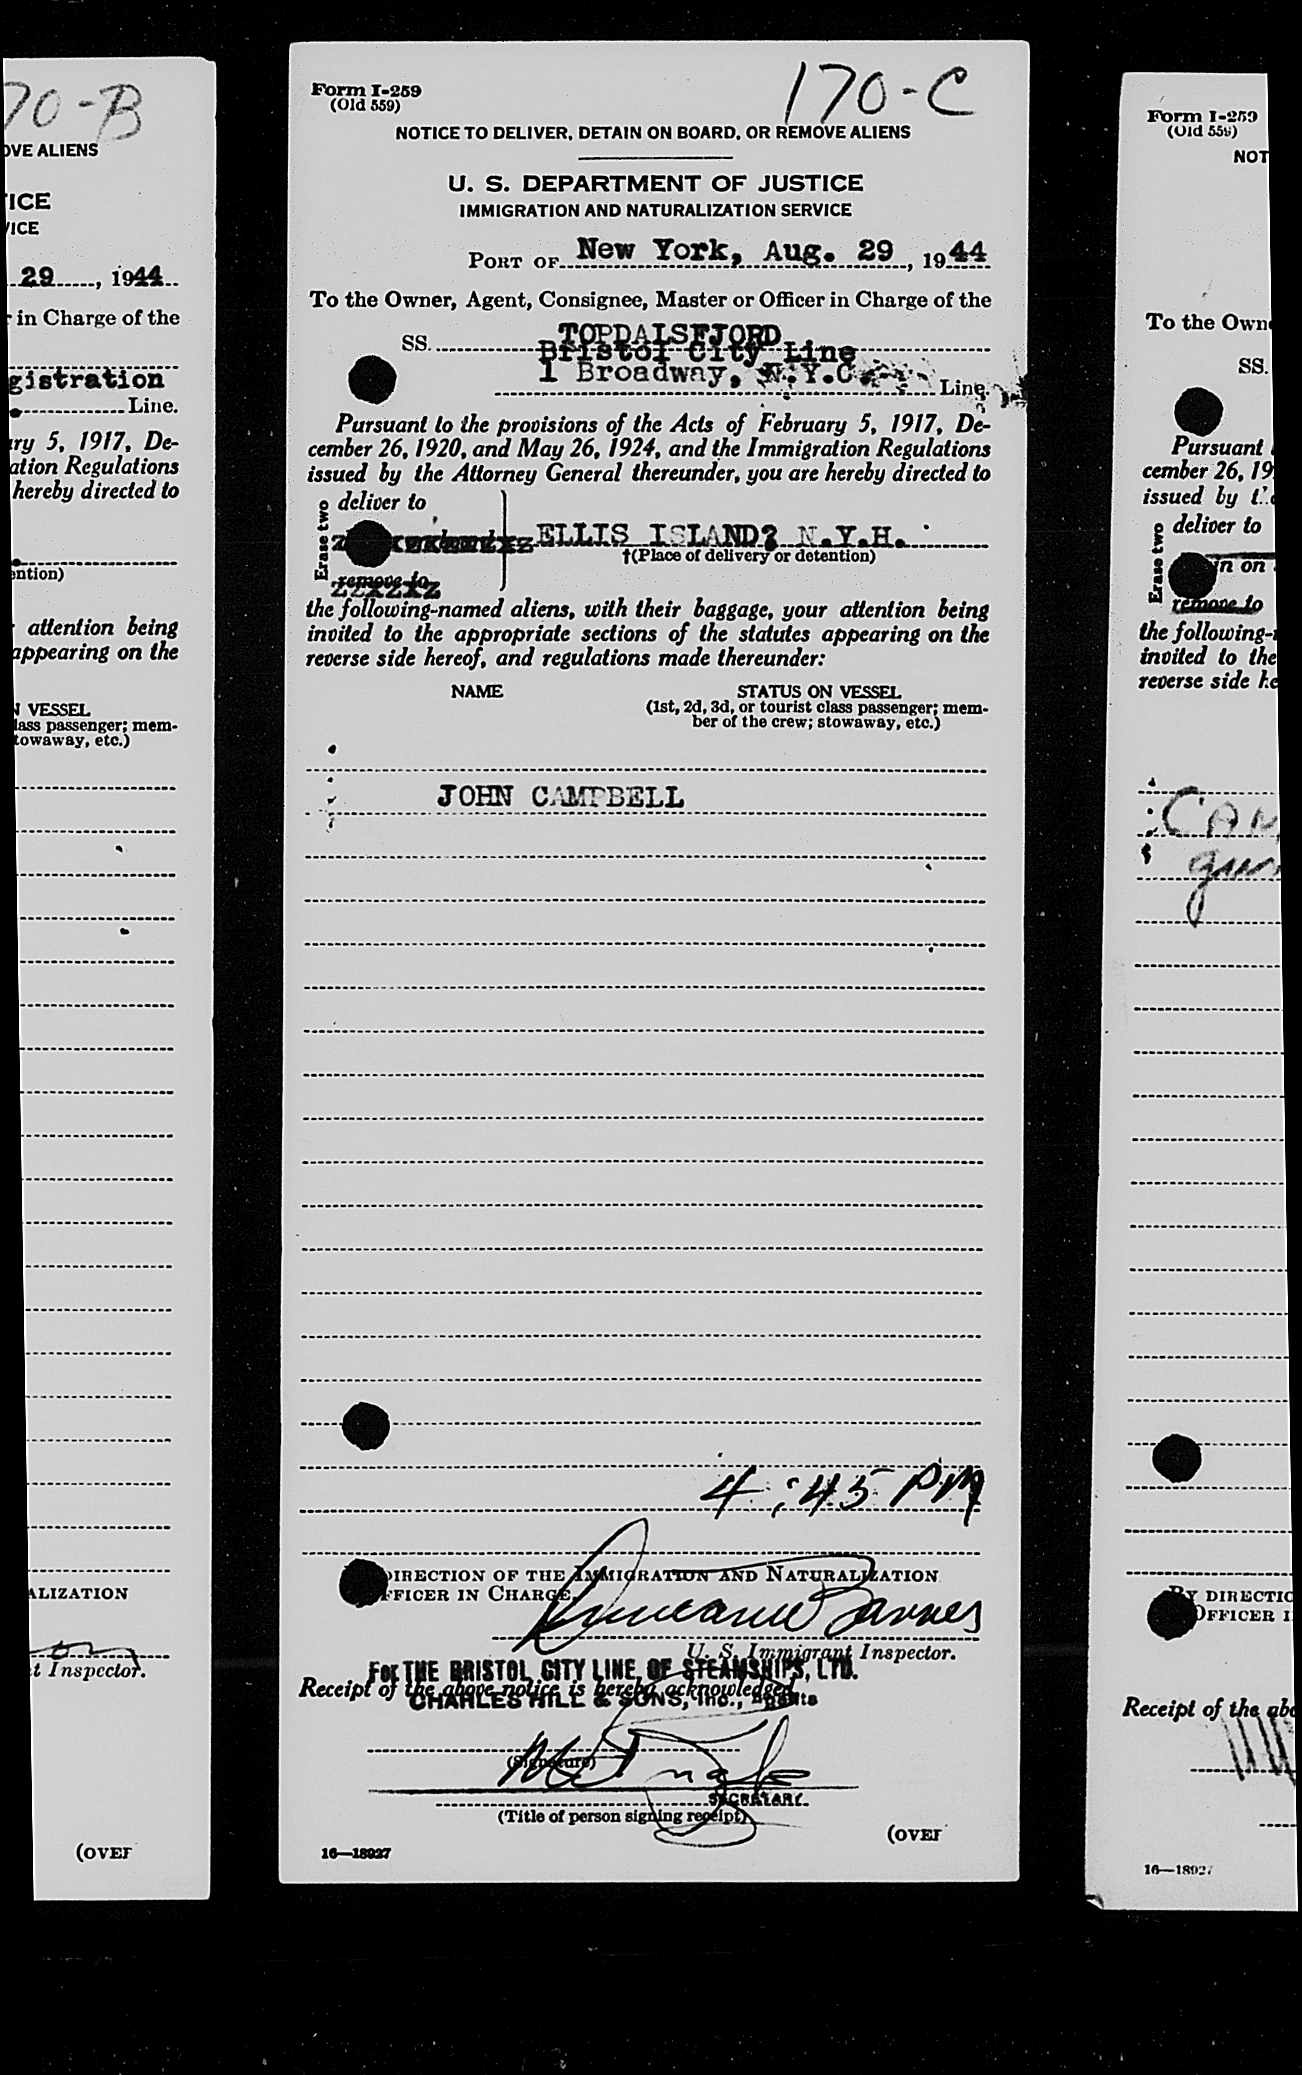 70-B
OVE ALIENS
ICE
VICE
29, 1944
r in Charge of the
gistration
Line.
ry 5, 1917, De-
ation Regulations
hereby directed to
ntion)
attention being
appearing on the
N VESSEL
lass passenger; mem-
towaway, etc.)
ALIZATION
t Inspector.
(OVER
Form I-259
(Old 559)
170-C
NOTICE TO DELIVER, DETAIN ON BOARD, OR REMOVE ALIENS
U. S. DEPARTMENT OF JUSTICE
IMMIGRATION AND NATURALIZATION SERVICE
PORT OF New York, Aug. 29, 1944
To the Owner, Agent, Consignee, Master or Officer in Charge of the
SS. TOPDALSFJORD
Bristol City Line
1 Broadway, N.Y.C. Line.
Pursuant to the provisions of the Acts of February 5, 1917, De-
cember 26, 1920, and May 26, 1924, and the Immigration Regulations
issued by the Attorney General thereunder, you are hereby directed to
Erase two
deliver to
ELLIS ISLAND? N.Y.H.
†(Place of delivery or detention)
remove to
the following-named aliens, with their baggage, your attention being
invited to the appropriate sections of the statutes appearing on the
reverse side hereof, and regulations made thereunder:
NAME STATUS ON VESSEL
(1st, 2d, 3d, or tourist class passenger; mem-
ber of the crew; stowaway, etc.)
JOHN CAMPBELL
4:45 PM
DIRECTION OF THE IMMIGRATION AND NATURALIZATION
OFFICER IN CHARGE.
Barnes
U. S. Immigrant Inspector.
For THE BRISTOL CITY LINE OF STEAMSHIPS, LTD.
Receipt of the above notice is hereby acknowledged
CHARLES HILL & SONS, Inc., Agents
(Signature)
SECRETARY
(Title of person signing receipt)
(OVER
16—18927
Form I-259
(Old 559)
NOT
To the Own
SS.
Pursuant
cember 26, 19
issued by the
Erase two
deliver to
in on
remove to
the following-
invited to the
reverse side he
CAM
BY DIRECTIO
OFFICER I
Receipt of the abo
16—18927